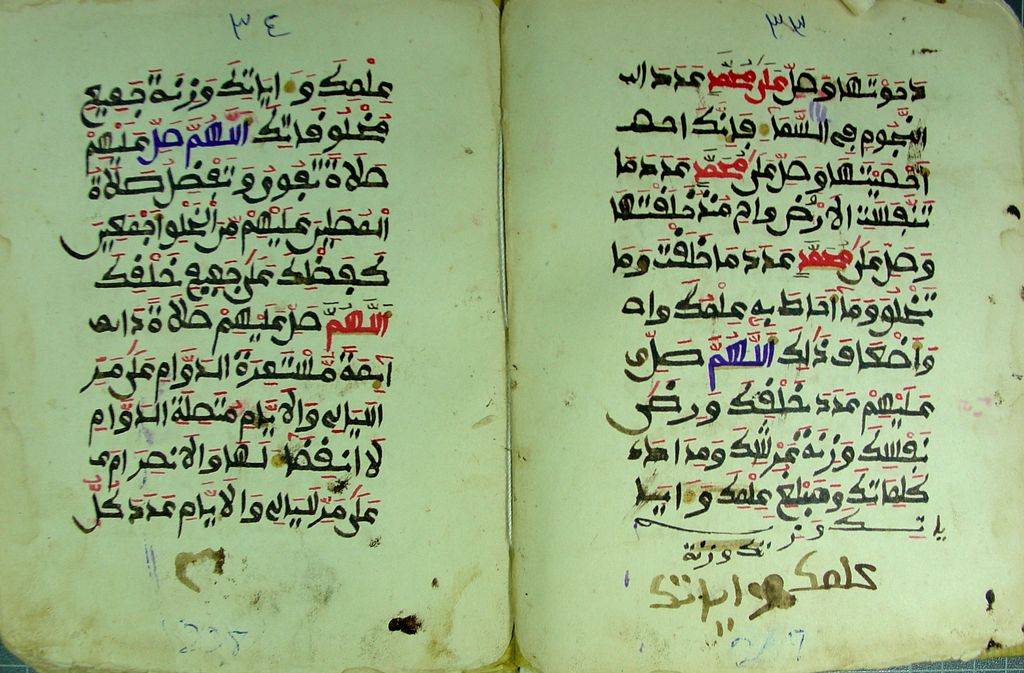 ٣٣
دحوتها وصل على محمد عدد
النجوم في السماء فإنك احصـ
أحصيتها وصل على محمد عدد ما
تنفست الارض وام منذ خلقتها
وصل على محمد عدد ما خلقت وما
تخلق وما أحاط به علمك وا
وأضعاف ذلك اللهم صل
عليهم عدد خلقك ورضى
نفسك وزنة عرشك ومداد
كلماتك ومبلغ علمك واياـ
تك وزنة
علمك واياتك
٣٤
علمك و اياتك وزنة جميع
مخلوقاتك اللهم صل عليهم
صلاة تفوق وتفضل صلاة
المصلين عليهم من الخلق اجمعين
كفضلك على جميع خلقك
اللهم صل عليهم صلاة دائمـ
مستمرة الدوام على مر
الليالي والايام متصلة الدوام
لا انقضا لها والانصرام
على مر لليالي والايام عدد كل